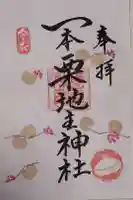 奉拝
一本栗地主神社